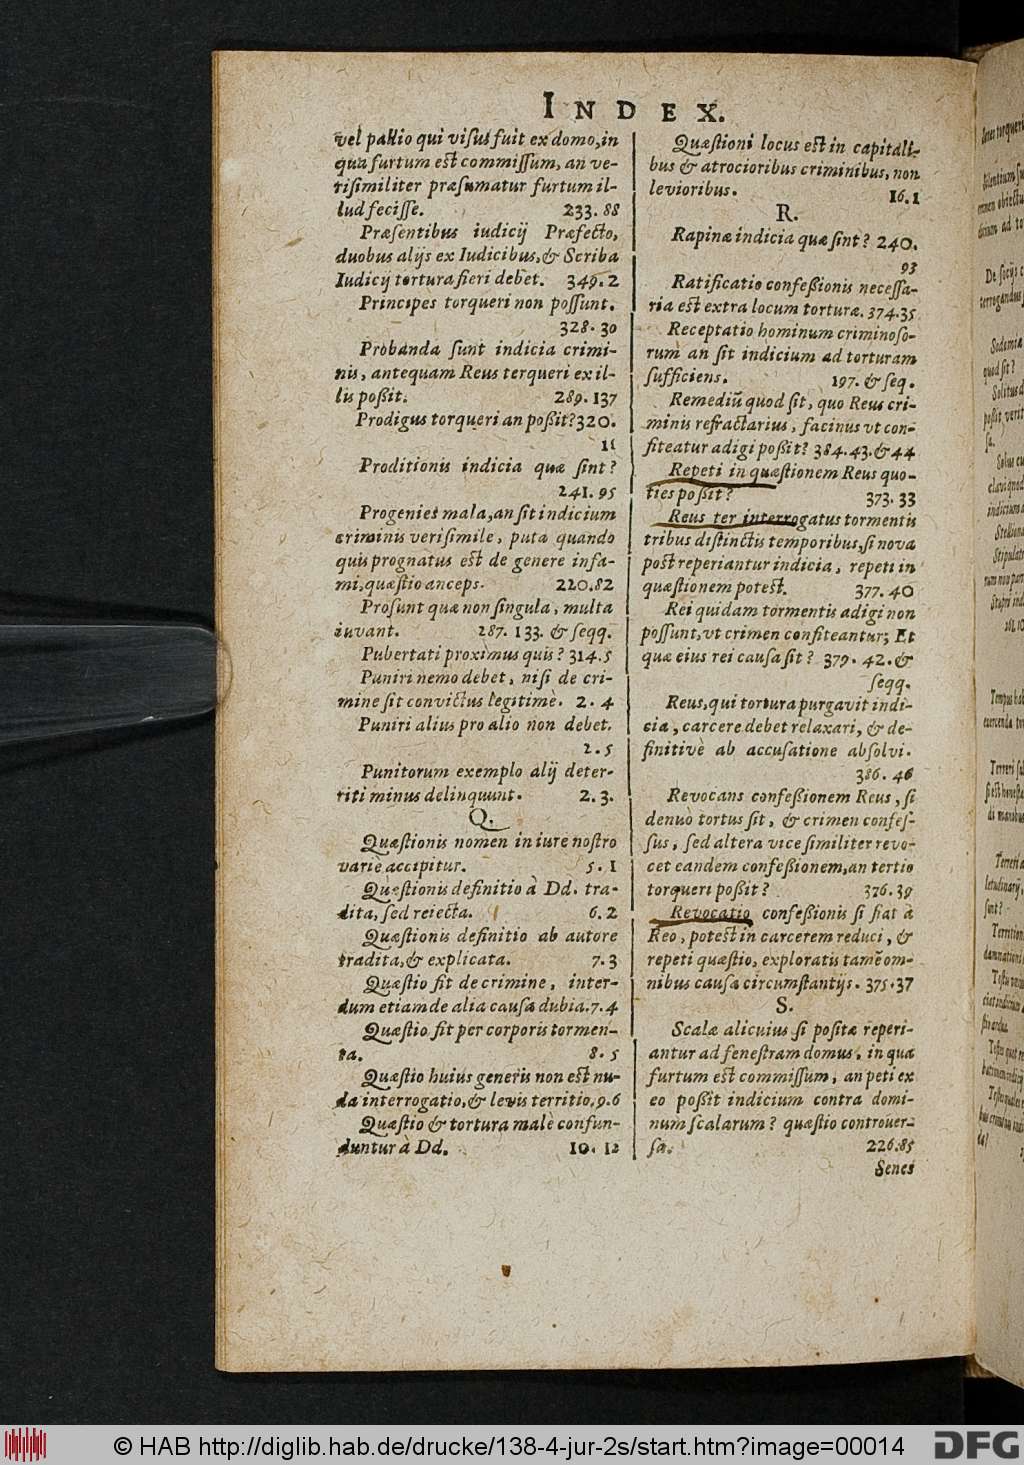 INDEX.
vel pallio qui visus fuit ex domo, in
qua furtum est commissum, an ve-
risimiliter præsumatur furtum il-
lud fecisse. 233. 88
Præsentibus iudicij Præfecto,
duobus alijs ex Iudicibus, & Scriba
Iudicij tortura fieri debet. 349. 2
Principes torqueri non possunt.
328. 30
Probanda sunt indicia crimi-
nis, antequam Reus terqueri ex il-
lis possit. 289. 137
Prodigus torqueri an possit? 320.
11
Proditionis indicia quæ sint?
241. 95
Progenies mala, an sit indicium
criminis verisimile, puta quando
quis prognatus est de genere infa-
mi, quæstio anceps. 220. 82
Prosunt quæ non singula, multa
iuvant. 287. 133. & seqq.
Pubertati proximus quis? 314. 5
Puniri nemo debet, nisi de cri-
mine sit convictus legitimè. 2. 4
Puniri alius pro alio non debet.
2. 5
Punitorum exemplo alij deter-
riti minus delinquunt. 2. 3.
Q.
Quæstionis nomen in iure nostro
variè accipitur. 5. 1
Quæstionis definitio à Dd. tra-
dita, sed reiecta. 6. 2
Quæstionis definitio ab autore
tradita, & explicata. 7. 3
Quæstio fit de crimine, inter-
dum etiam de alia causa dubia. 7. 4
Quæstio fit per corporis tormen-
ta. 8. 5
Quæstio huius generis non est nu-
da interrogatio, & levis territio, 9. 6
Quæstio & tortura malè confun-
duntur à Dd. 10. 12
Quæstioni locus est in capitali-
bus & atrocioribus criminibus, non
levioribus. 16. 1
R.
Rapinæ indicia quæ sint? 240.
93
Ratificatio confessionis necessa-
ria est extra locum torturæ. 374. 35
Receptatio hominum criminoso-
rum an sit indicium ad torturam
sufficiens. 197. & seq.
Remediū quod sit, quo Reus cri-
minis refractarius, facinus vt con-
fiteatur adigi possit? 384. 43. & 44
Repeti in quæstionem Reus quo-
ties possit? 373. 33
Reus ter interrogatus tormentis
tribus distinctis temporibus, si nova
post reperiantur indicia, repeti in
quæstionem potest. 377. 40
Rei quidam tormentis adigi non
possunt, vt crimen confiteantur; Et
quæ eius rei causa sit? 379. 42. &
seqq.
Reus, qui tortura purgavit indi-
cia, carcere debet relaxari, & de-
finitivè ab accusatione absolvi.
386. 46
Revocans confessionem Reus, si
denuò tortus sit, & crimen confes-
sus, sed altera vice similiter revo-
cet eandem confessionem, an tertio
torqueri possit? 376. 39
Revocatio confessionis si fiat à
Reo, potest in carcerem reduci, &
repeti quæstio, exploratis tamē om-
nibus causæ circumstantijs. 375. 37
S.
Scalæ alicuius si positæ reperi-
antur ad fenestram domus, in qua
furtum est commissum, an peti ex
eo possit indicium contra domi-
num scalarum? quæstio controver-
sa. 226. 85
Senes
© HAB http://diglib.hab.de/drucke/138-4-jur-2s/start.htm?image=00014
DFG